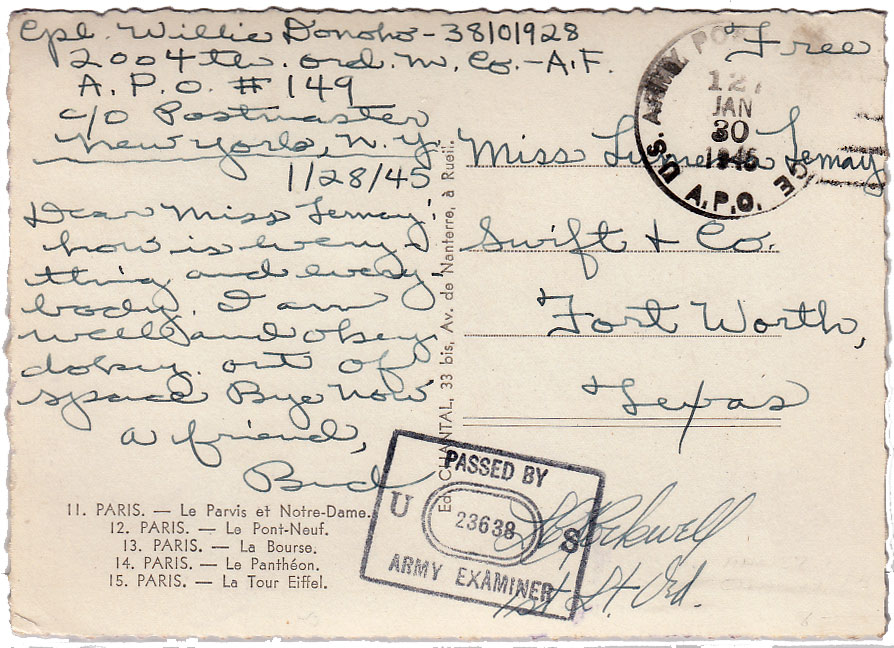 Cpl. Willie Donoho-38101928
2004th. ord. m. Co.-A.F.
A.P.O. # 149
c/o Postmaster
New York, N.Y.
1/28/45
Dear Miss Lemay:
how is every-
thing and every
body. I am
well and okey
dokey. out of
space Bye Now
a friend,
Bud
11. PARIS. — Le Parvis et Notre-Dame.
12. PARIS. — Le Pont-Neuf.
13. PARIS. — La Bourse.
14. PARIS. — Le Panthéon.
15. PARIS. — La Tour Eiffel.
Ed. CHANTAL, 33 bis, Av. de Nanterre, à Rueil.
Free
U.S. ARMY
A.P.O.
JAN
30
1945
Miss Lemay
Swift + Co.
Fort Worth,
Texas
PASSED BY
U 23638 S
ARMY EXAMINER
Rockwell
1st Lt. Ord.